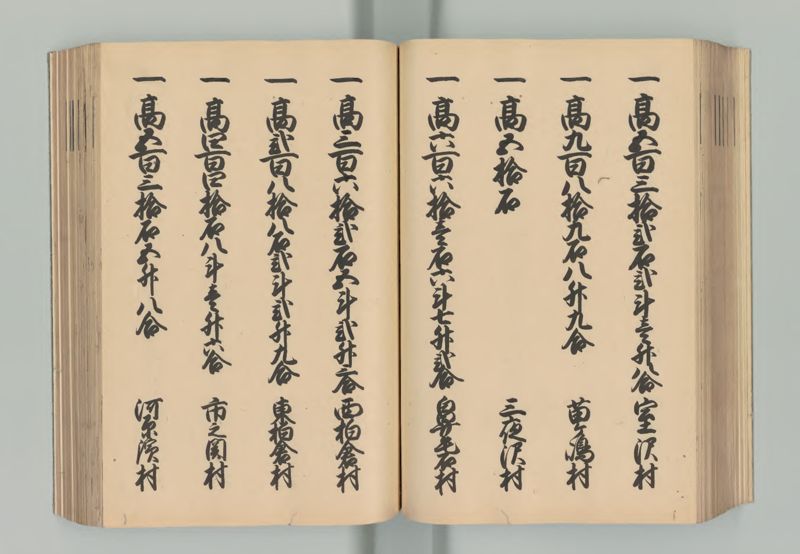 一 高五百三拾弐石弐斗壱升八合 室沢村
一 高九百八拾九石八升九合 苗ヶ嶋村
一 高五拾石 三夜沢村
一 高六百六拾壱石六斗七升弐合 鼻毛石村
一 高三百六拾弐石五斗弐升六合 西柏倉村
一 高弐百八拾八石弐斗弐升九合 東柏倉村
一 高四百四拾石八斗壱升六合 市之関村
一 高五百三拾石五升八合 河原濱村